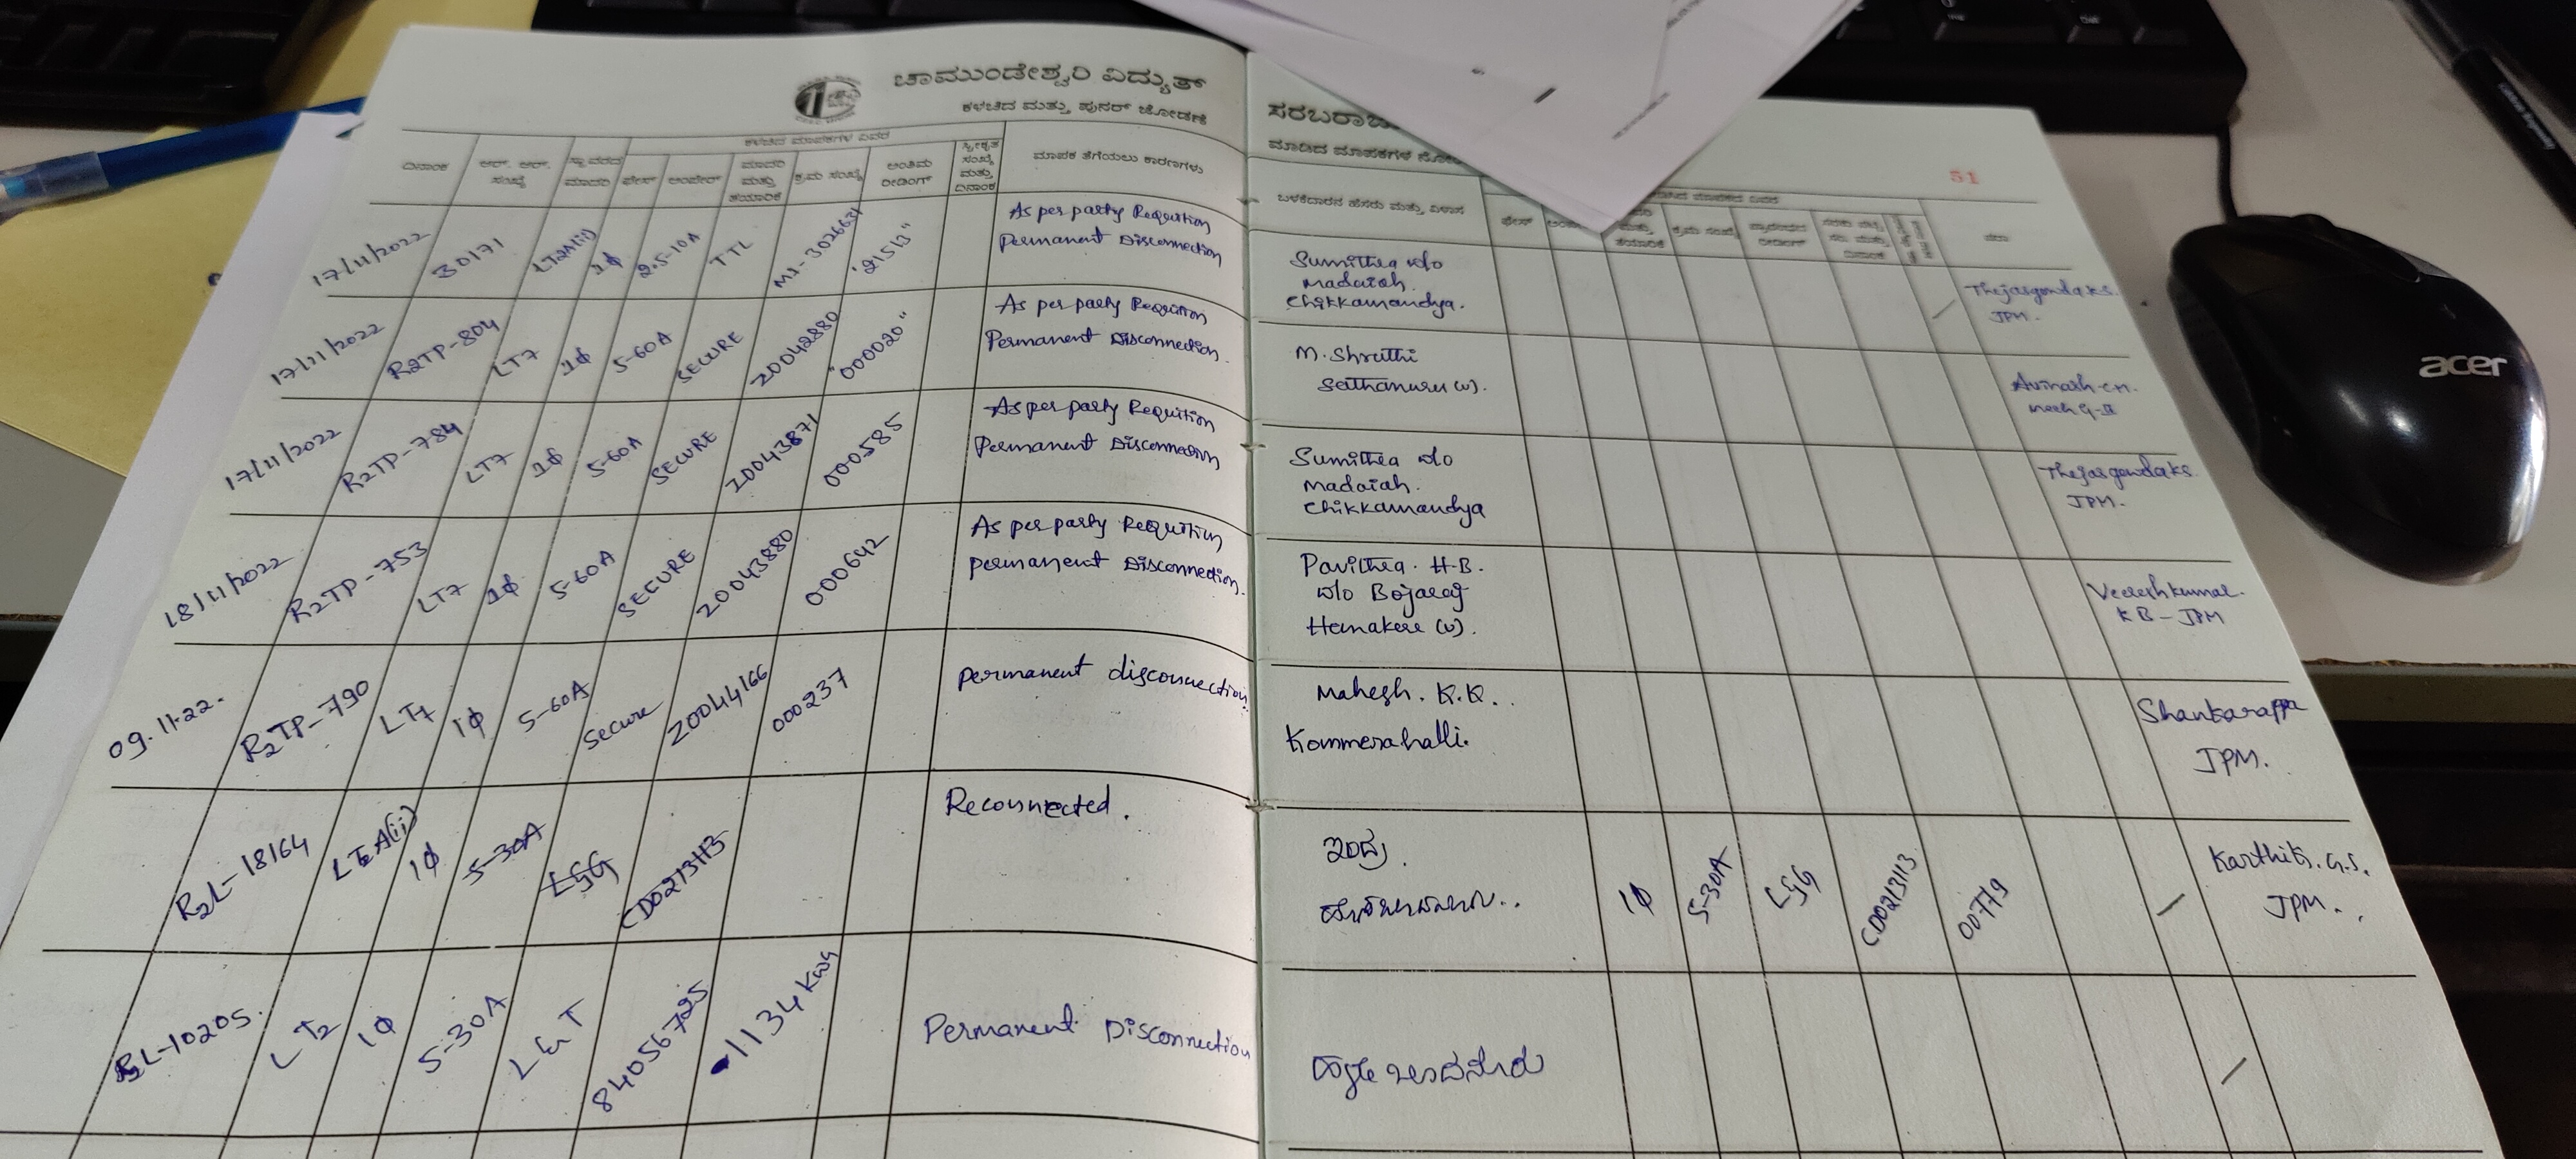 ಚಾಮುಂಡೇಶ್ವರಿ ವಿದ್ಯುತ್
ಕಳಚಿದ ಮತ್ತು ಪುನರ್ ಜೋಡಣೆ
ಕಳಚಿದ ಮಾಪಕಗಳ ವಿವರ
ದಿನಾಂಕ ಆರ್. ಆರ್. ಸಂಖ್ಯೆ ಸ್ಥಾವರದ ಮಾದರಿ ಫೇಸ್ ಅಂಪೇರ್ ಮಾದರಿ ಮತ್ತು ತಯಾರಿಕೆ ಕ್ರಮ ಸಂಖ್ಯೆ ಅಂತಿಮ ರೀಡಿಂಗ್ ಸ್ವೀಕೃತ ಸಂಖ್ಯೆ ಮತ್ತು ದಿನಾಂಕ ಮಾಪಕ ತೆಗೆಯಲು ಕಾರಣಗಳು
17/11/2022 30171 LT2A(ii) 1φ 2.5-10A TTL "21513" As per party Requition
Permanent Disconnection
17/11/2022 R2TP-804 LT7 1φ 5-60A SECURE 20042880 "000020" As per party Requition
Permanent Disconnection.
17/11/2022 R2TP-784 LT7 1φ 5-60A SECURE 20043871 000585 As per party Requition
Permanent Disconnection
18/11/2022 R2TP-753 LT7 1φ 5-60A SECURE 20043880 000642 As per party Requition
permanent Disconnection.
09.11.22. R2TP-790 LT7 1φ 5-60A Secure 20044166 000237 permanent disconnection
R2L-18164 1φ 5-30A L&G CD0213113 Reconnected.
10205. LT2 1φ 5-30A L&T 84056725 1134 kwh Permanent Disconnection
51
ಮಾಡಿದ ಮಾಪಕಗಳ
ಬಳಕೆದಾರನ ಹೆಸರು ಮತ್ತು ವಿಳಾಸ ಫೇಸ್ ಮತ್ತು ತಯಾರಿಕೆ ಕ್ರಮ ಸಂಖ್ಯೆ ಪ್ರಾರಂಭದ ರೀಡಿಂಗ್
Sumithra w/o
Madaiah.
Chikkamandya.
Thejasgowda k s.
JPM.
M. Shruthi
Sathanuru (v).
Avinash
Sumithra w/o
Madaiah.
Chikkamandya
Thejasgowda k s.
JPM.
Pavithra. H.B.
w/o Bojaraj
Hemakere (v).
Veereshkumar.
K B - JPM
Mahesh. K.K.
Kommerahalli.
Shankarappa
JPM.
ಇಂದ್ರ.
1φ 5-30A L&G CD0213113 00779
Karthik. G.S.
JPM.